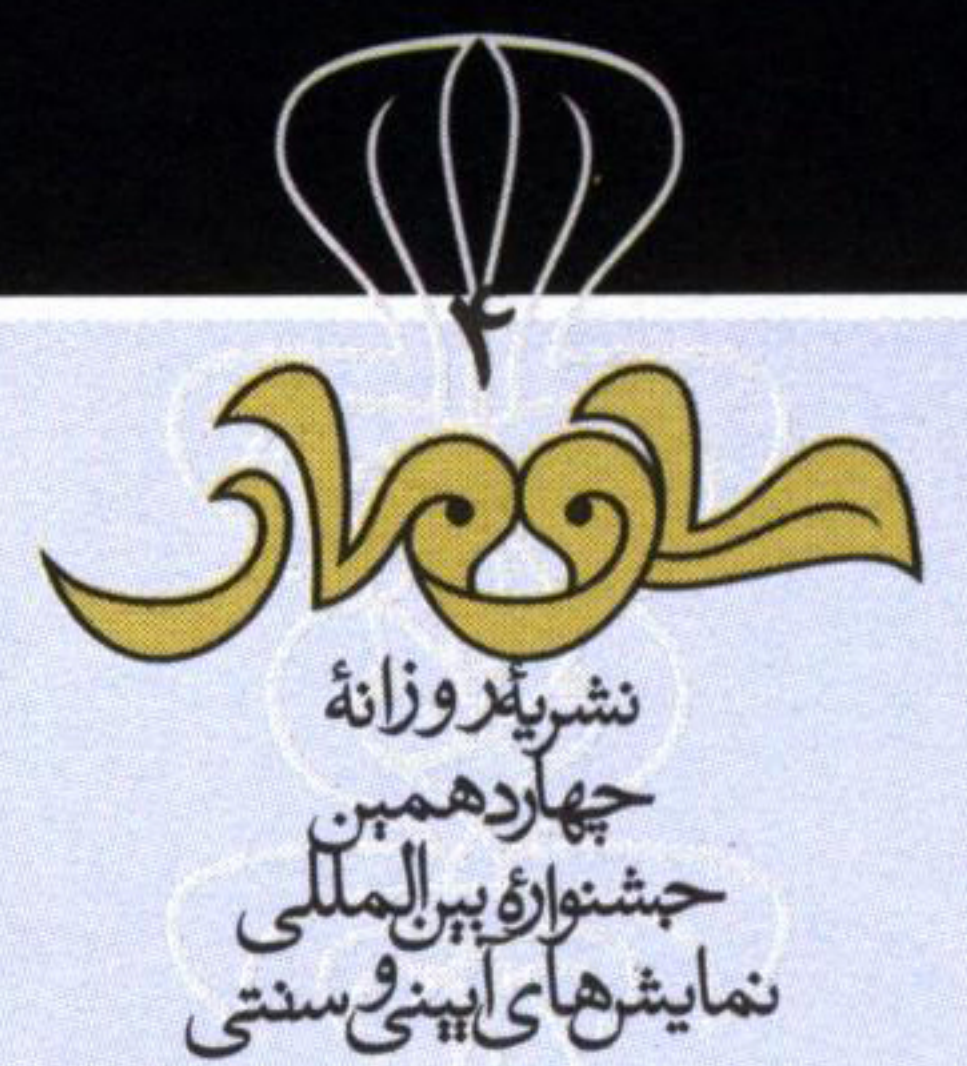 ۴
طومار
نشریهٔ روزانهٔ
چهاردهمین
جشنوارهٔ بین‌المللی
نمایش‌های آیینی و سنتی